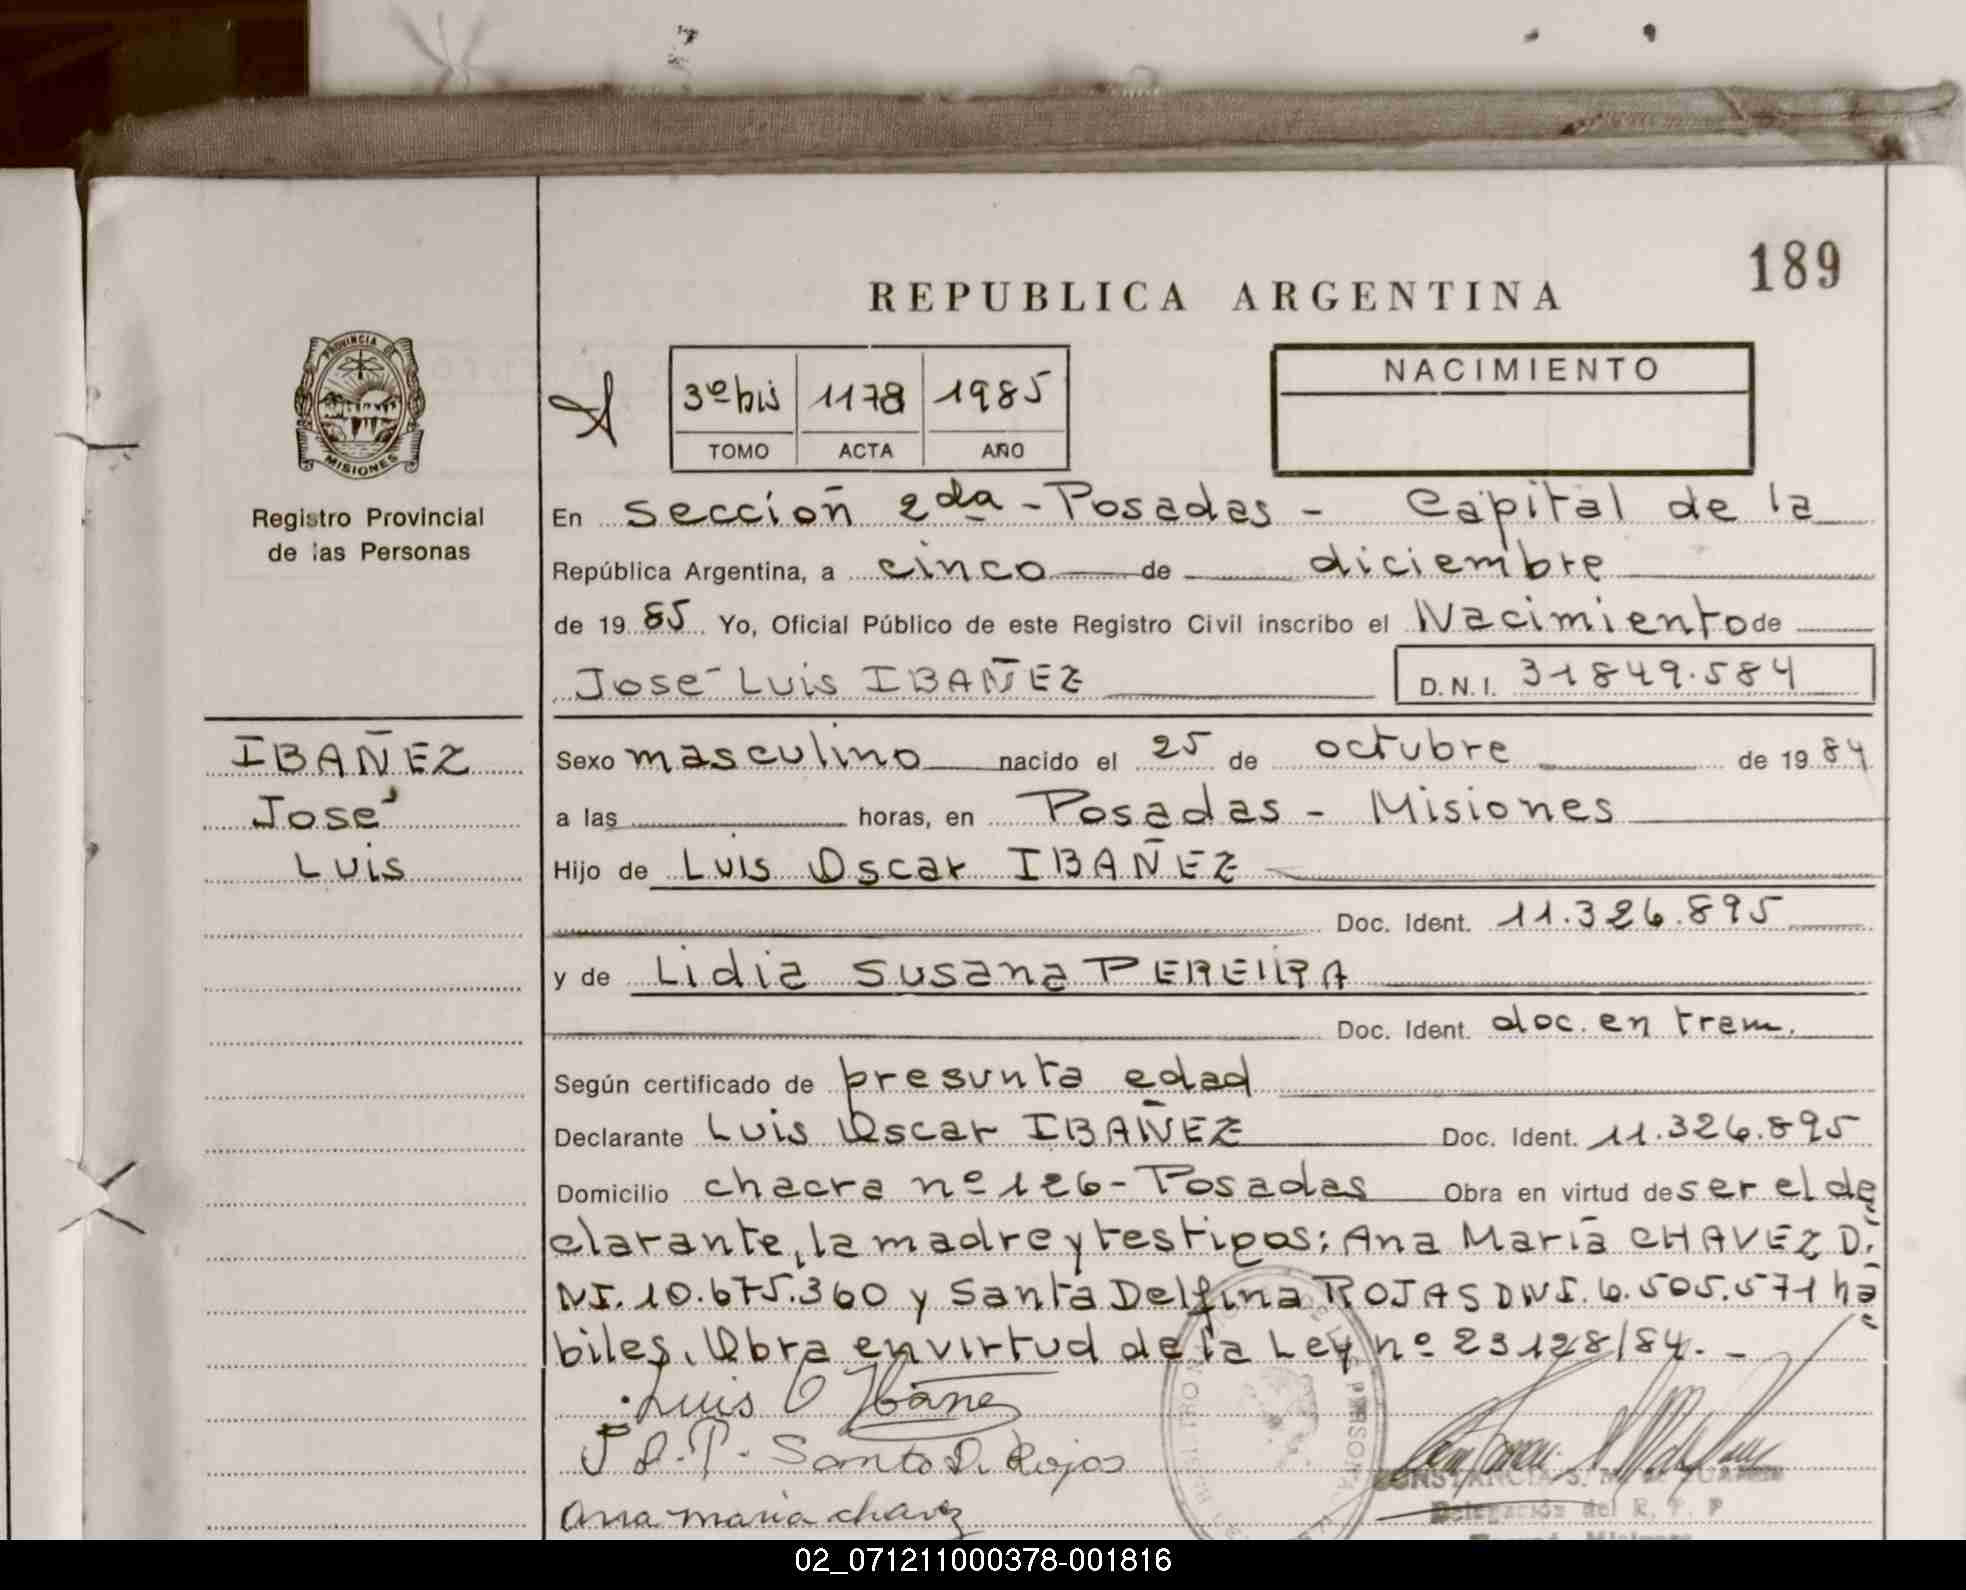 189
REPUBLICA ARGENTINA
PROVINCIA DE
MISIONES
Registro Provincial
de las Personas
3º bis 1178 1985
TOMO ACTA AÑO
NACIMIENTO
En Sección 2da - Posadas - Capital de la
República Argentina, a cinco de diciembre
de 19 85 Yo, Oficial Público de este Registro Civil inscribo el Nacimiento de
José Luis IBAÑEZ D.N.I. 31849.584
IBAÑEZ
José
Luis
Sexo masculino nacido el 25 de octubre de 19 84
a las horas, en Posadas - Misiones
Hijo de Luis Oscar IBAÑEZ
Doc. Ident. 11.326.895
y de Lidia Susana PEREIRA
Doc. Ident. doc. en tram.
Según certificado de presunta edad
Declarante Luis Oscar IBAÑEZ Doc. Ident. 11.326.895
Domicilio chacra nº 126 - Posadas Obra en virtud de ser el de
clarante, la madre y testigos: Ana María CHAVEZ D.
NI. 10.675.360 y Santa Delfina ROJAS DNI. 6.505.571 há
biles. Obra en virtud de la Ley nº 23128/84. -
Luis O Ibáñez
Santa D. Rojas
Ana maria chavez
CONSTANCIA S.
Delegación del R. P. P
02_071211000378-001816